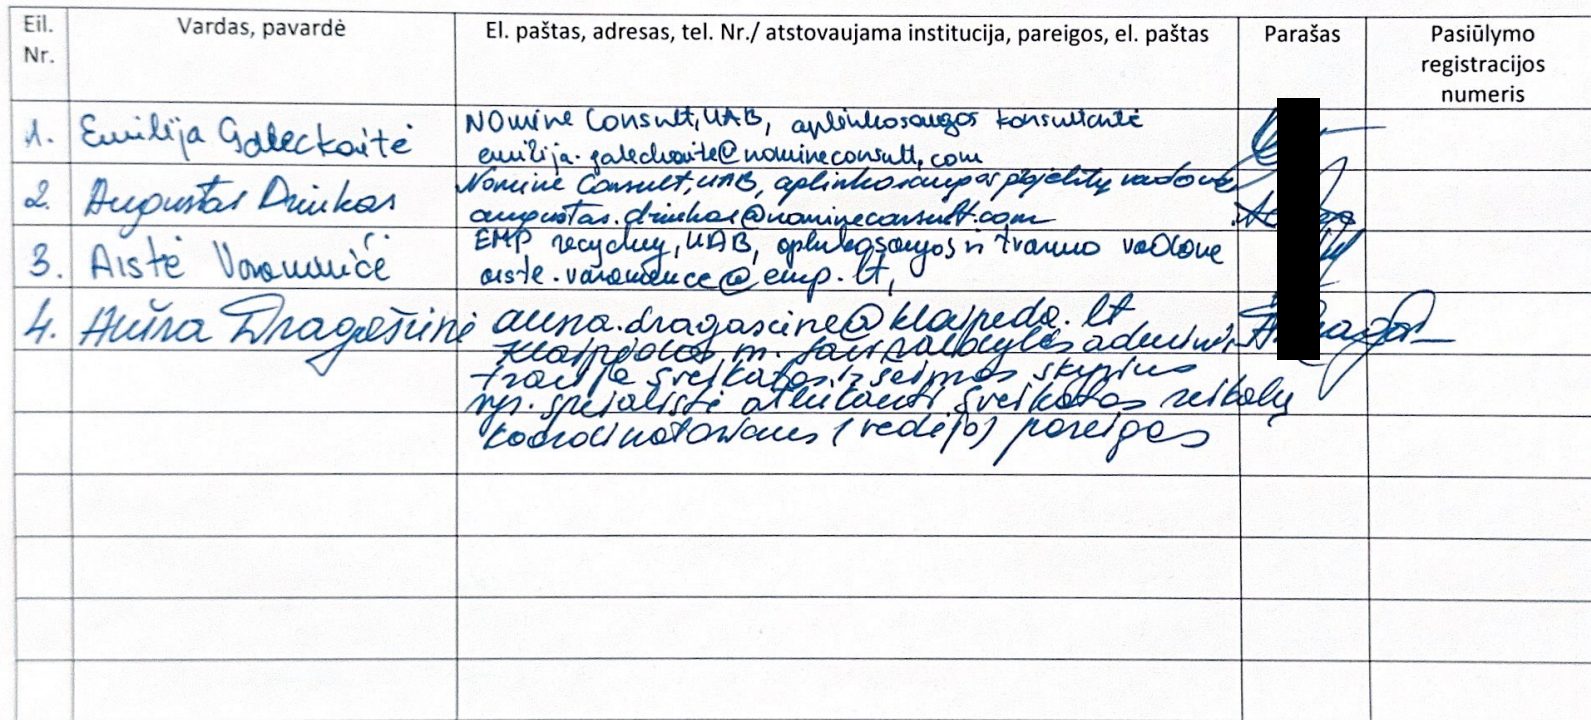 Eil. Nr. Vardas, pavardė El. paštas, adresas, tel. Nr./ atstovaujama institucija, pareigos, el. paštas Parašas Pasiūlymo registracijos numeris
1. Emilija Galeckaitė NOmine Consult, UAB, aplinkosaugos konsultantė
emilija.galeckaite@nomineconsult.com
2. Augustas Drinkas Nomine Consult, UAB, aplinkosaugos projektų vadovas
augustas.drinkas@nomineconsult.com
3. Aistė EMP recycling, UAB, aplinkosaugos ir tvarumo vadovė
@emp.lt,
4. Aušra Dragašienė
@klaipeda.lt
Klaipėdos m. savivaldybės adminis
tracija sveikatos ir šeimos skyrius
vyr. specialistė atliekanti sveikatos reikalų
koordinatoriaus (vedėjo) pareigas